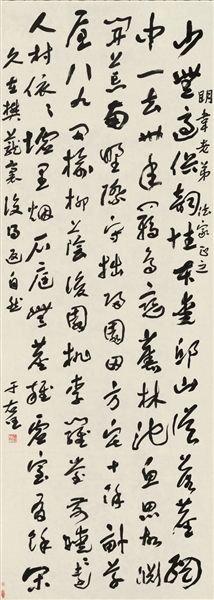 明韋老弟 法家正之
少無適俗韻性本愛邱山誤落塵網
中一去卅年羈鳥戀舊林池魚思故淵
開荒南野際守拙歸園田方宅十餘畝草
屋八九間榆柳蔭後園桃李羅堂前曖〻遠
人村依〻墟里烟戶庭無塵雜虛室有餘閑
久在樊籠裏復得返自然
于右任